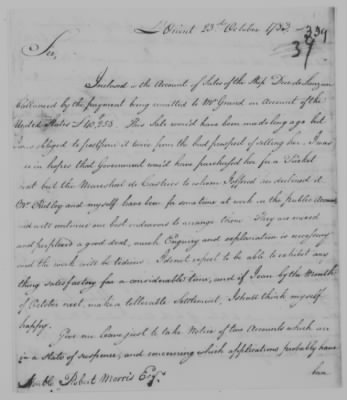 L'Orient 23d October 1783. 
339
39
Sir,
Inclosed is the Account of Sales of the Ship Duc de Lauzun
ballanced by the payment being remitted to Mr Grand on Account of the
United States £40,353. This Sale wou'd have been made long ago but
I was obliged to postpone it twice from the bad prospect of selling her. I was
in hopes that Government wou'd have purchased her for a Packet
but the Mareshal de Castries to whom I offered her declined it.
Mr Ridley and myself have been for some time at work in the public Accounts
and will continue our best endeavors to arrange them. They are mixed
and perplex'd a good deal, much Enquiry and explanation is necessary
and the work will be tedious. I do not expect to be able to exhibit any
thing satisfactory for a considerable time, and if I can by the Month
of October next, make a tollerable Settlement, I shall think myself
happy.
Give me leave just to take Notice of two Accounts which are
in a State of suspense, and concerning which applications probably have
been
Honble Robert Morris Esqr.